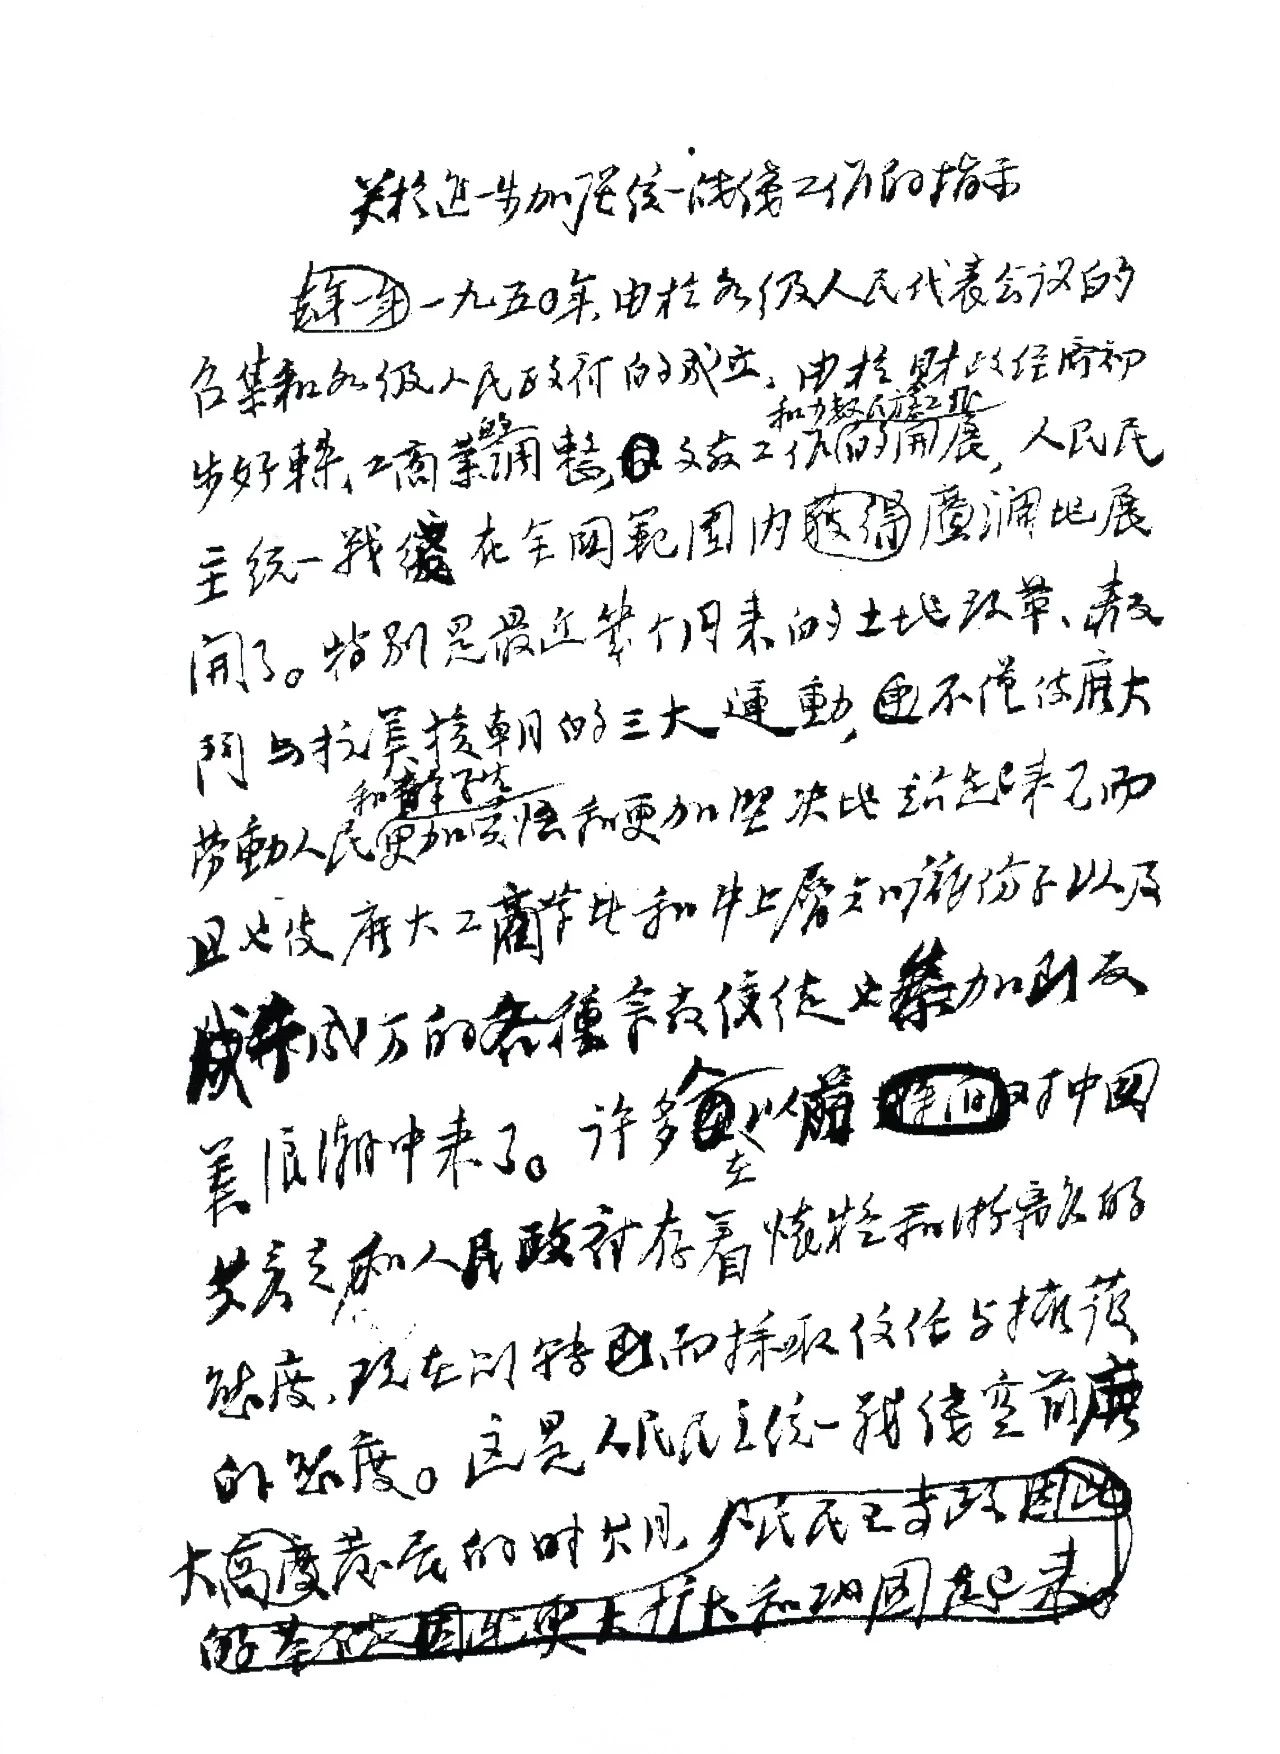 关於進一步加强统一战綫工作的指示
去年一年一九五〇年,由於各级人民代表会议的
召集和各级人民政府的成立,由於财政经济初
步好轉、工商業的调整,文教工作的開展,人民民
主统一战綫在全国範围内获得廣濶地展
開了。特别是最近幾个月来的土地改革、
與抗美援朝的三大運動,不僅使廣大
和青年学生
劳動人民更加觉悟和更加坚决地站起来了而
且也使廣大工商業者和中上層知识份子以及
成千成万的各種宗教信徒也参加到反
美浪潮中来了。许多人以前对中国
在
共產党和人民政府存着懷疑和游離的
態度,现在则转而採取信任与擁護
的態度。这是人民民主统一战綫空前廣
大高度發展的时期,人民民主专政因此
的基礎因此更大扩大和巩固起来。